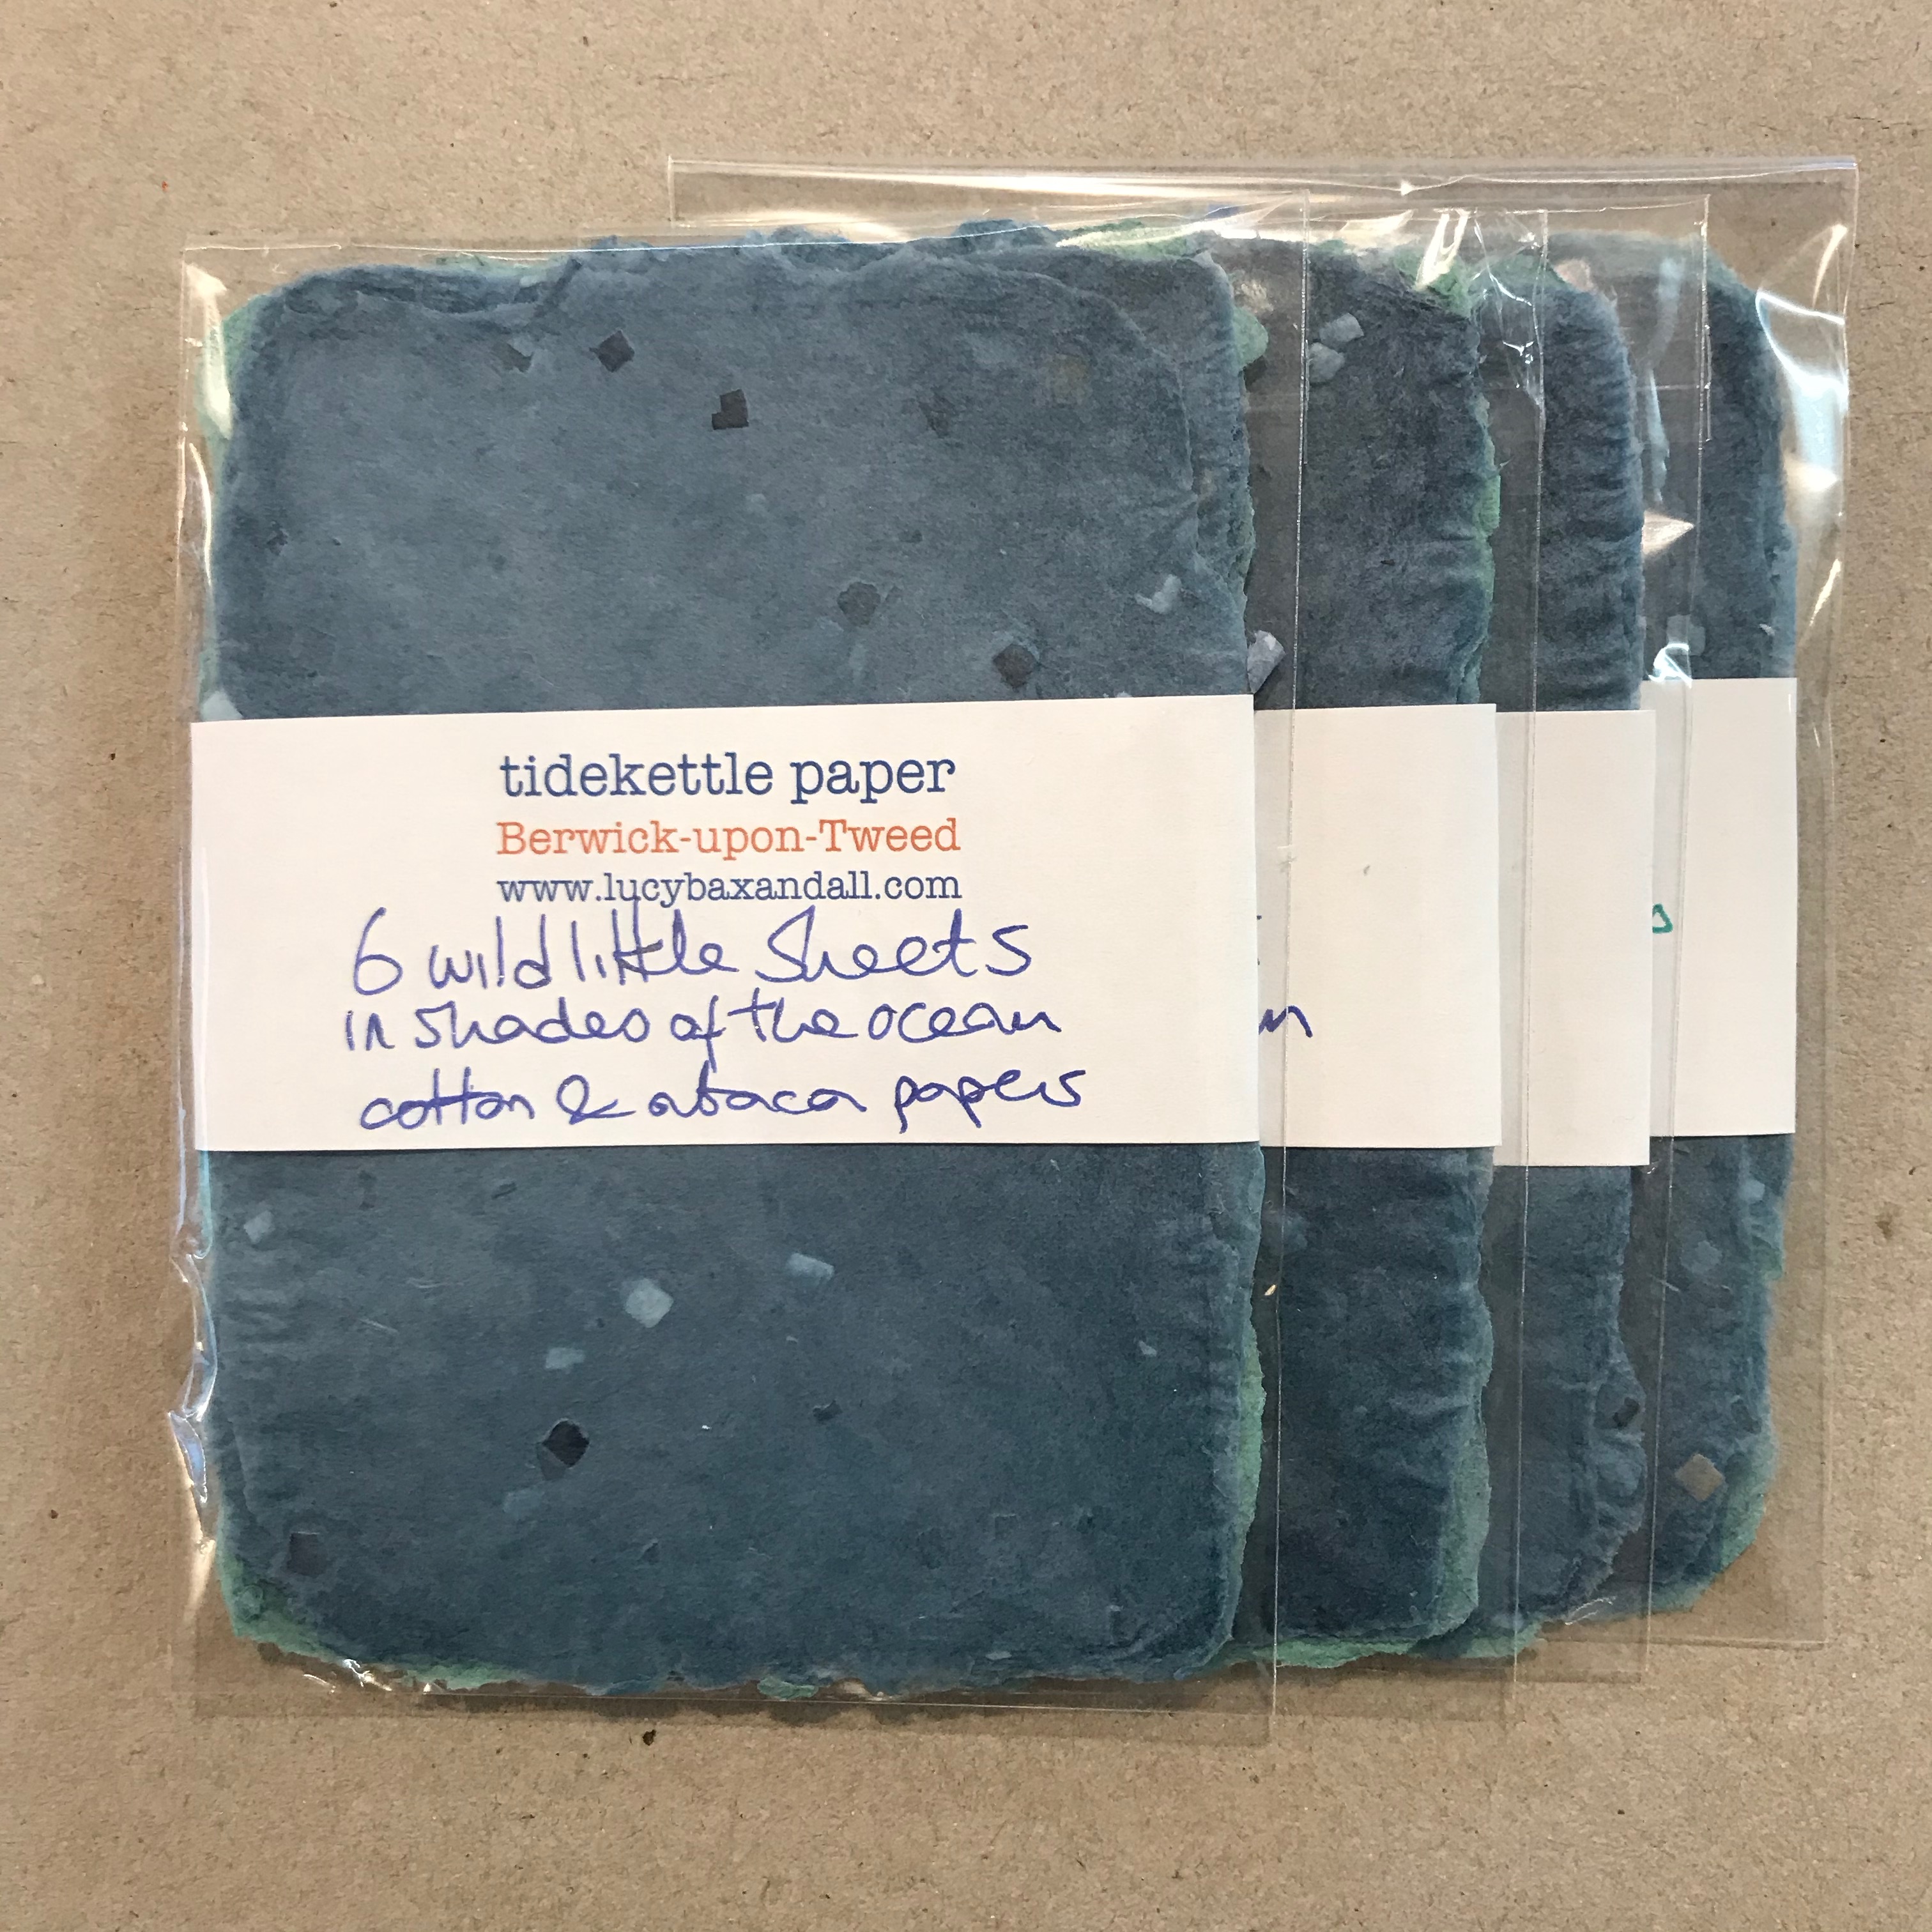 tidekettle paper
Berwick-upon-Tweed
www.lucybaxandall.com
6 wild little Sheets
in shades of the ocean
cotton & abaca papers